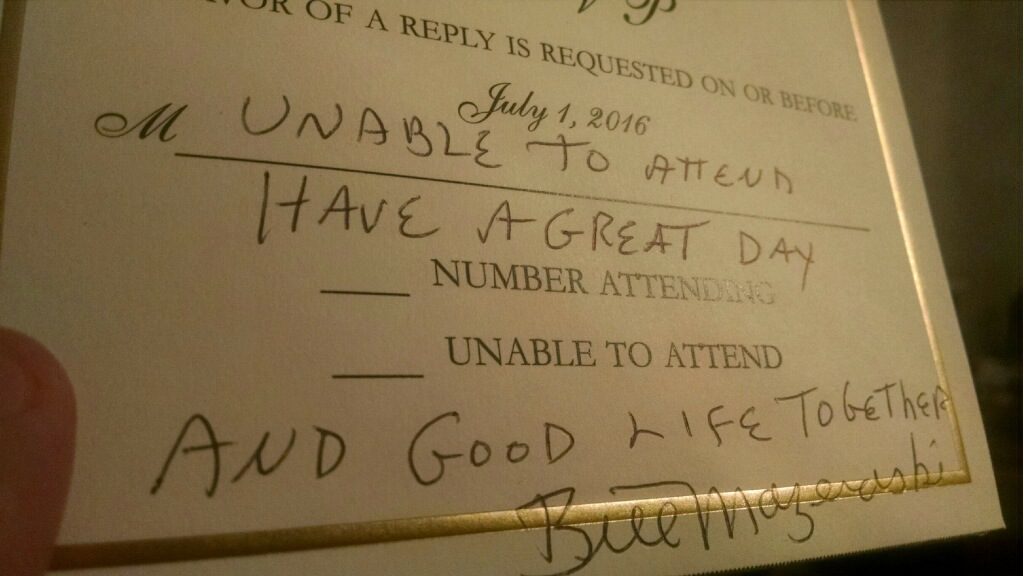 OF A REPLY IS REQUESTED ON OR BEFORE
July 1, 2016
M UNABLE TO ATTEND
HAVE A GREAT DAY
NUMBER ATTENDING
UNABLE TO ATTEND
AND GOOD LIFE TOGETHER
Bill Mazeroski